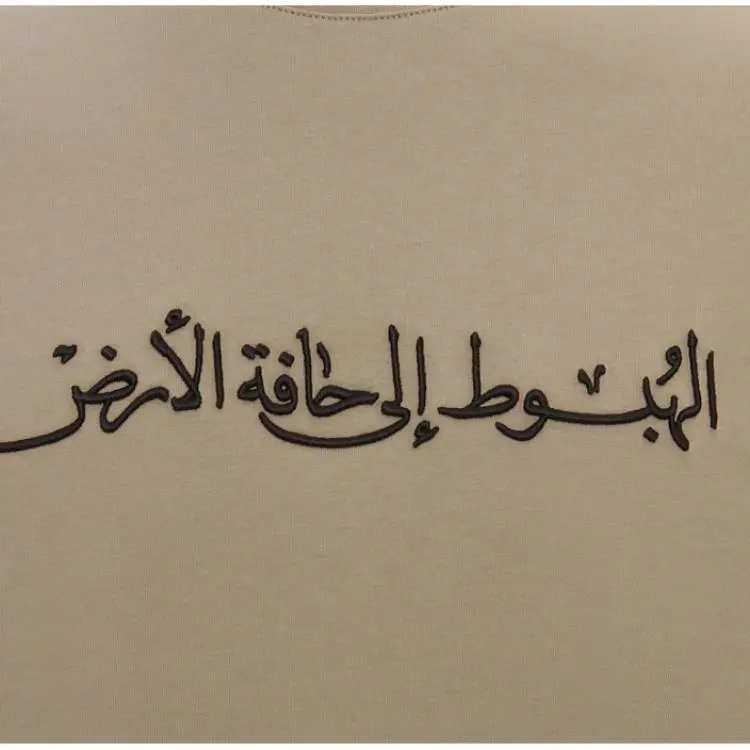 الهبوط إلى حافة الأرض